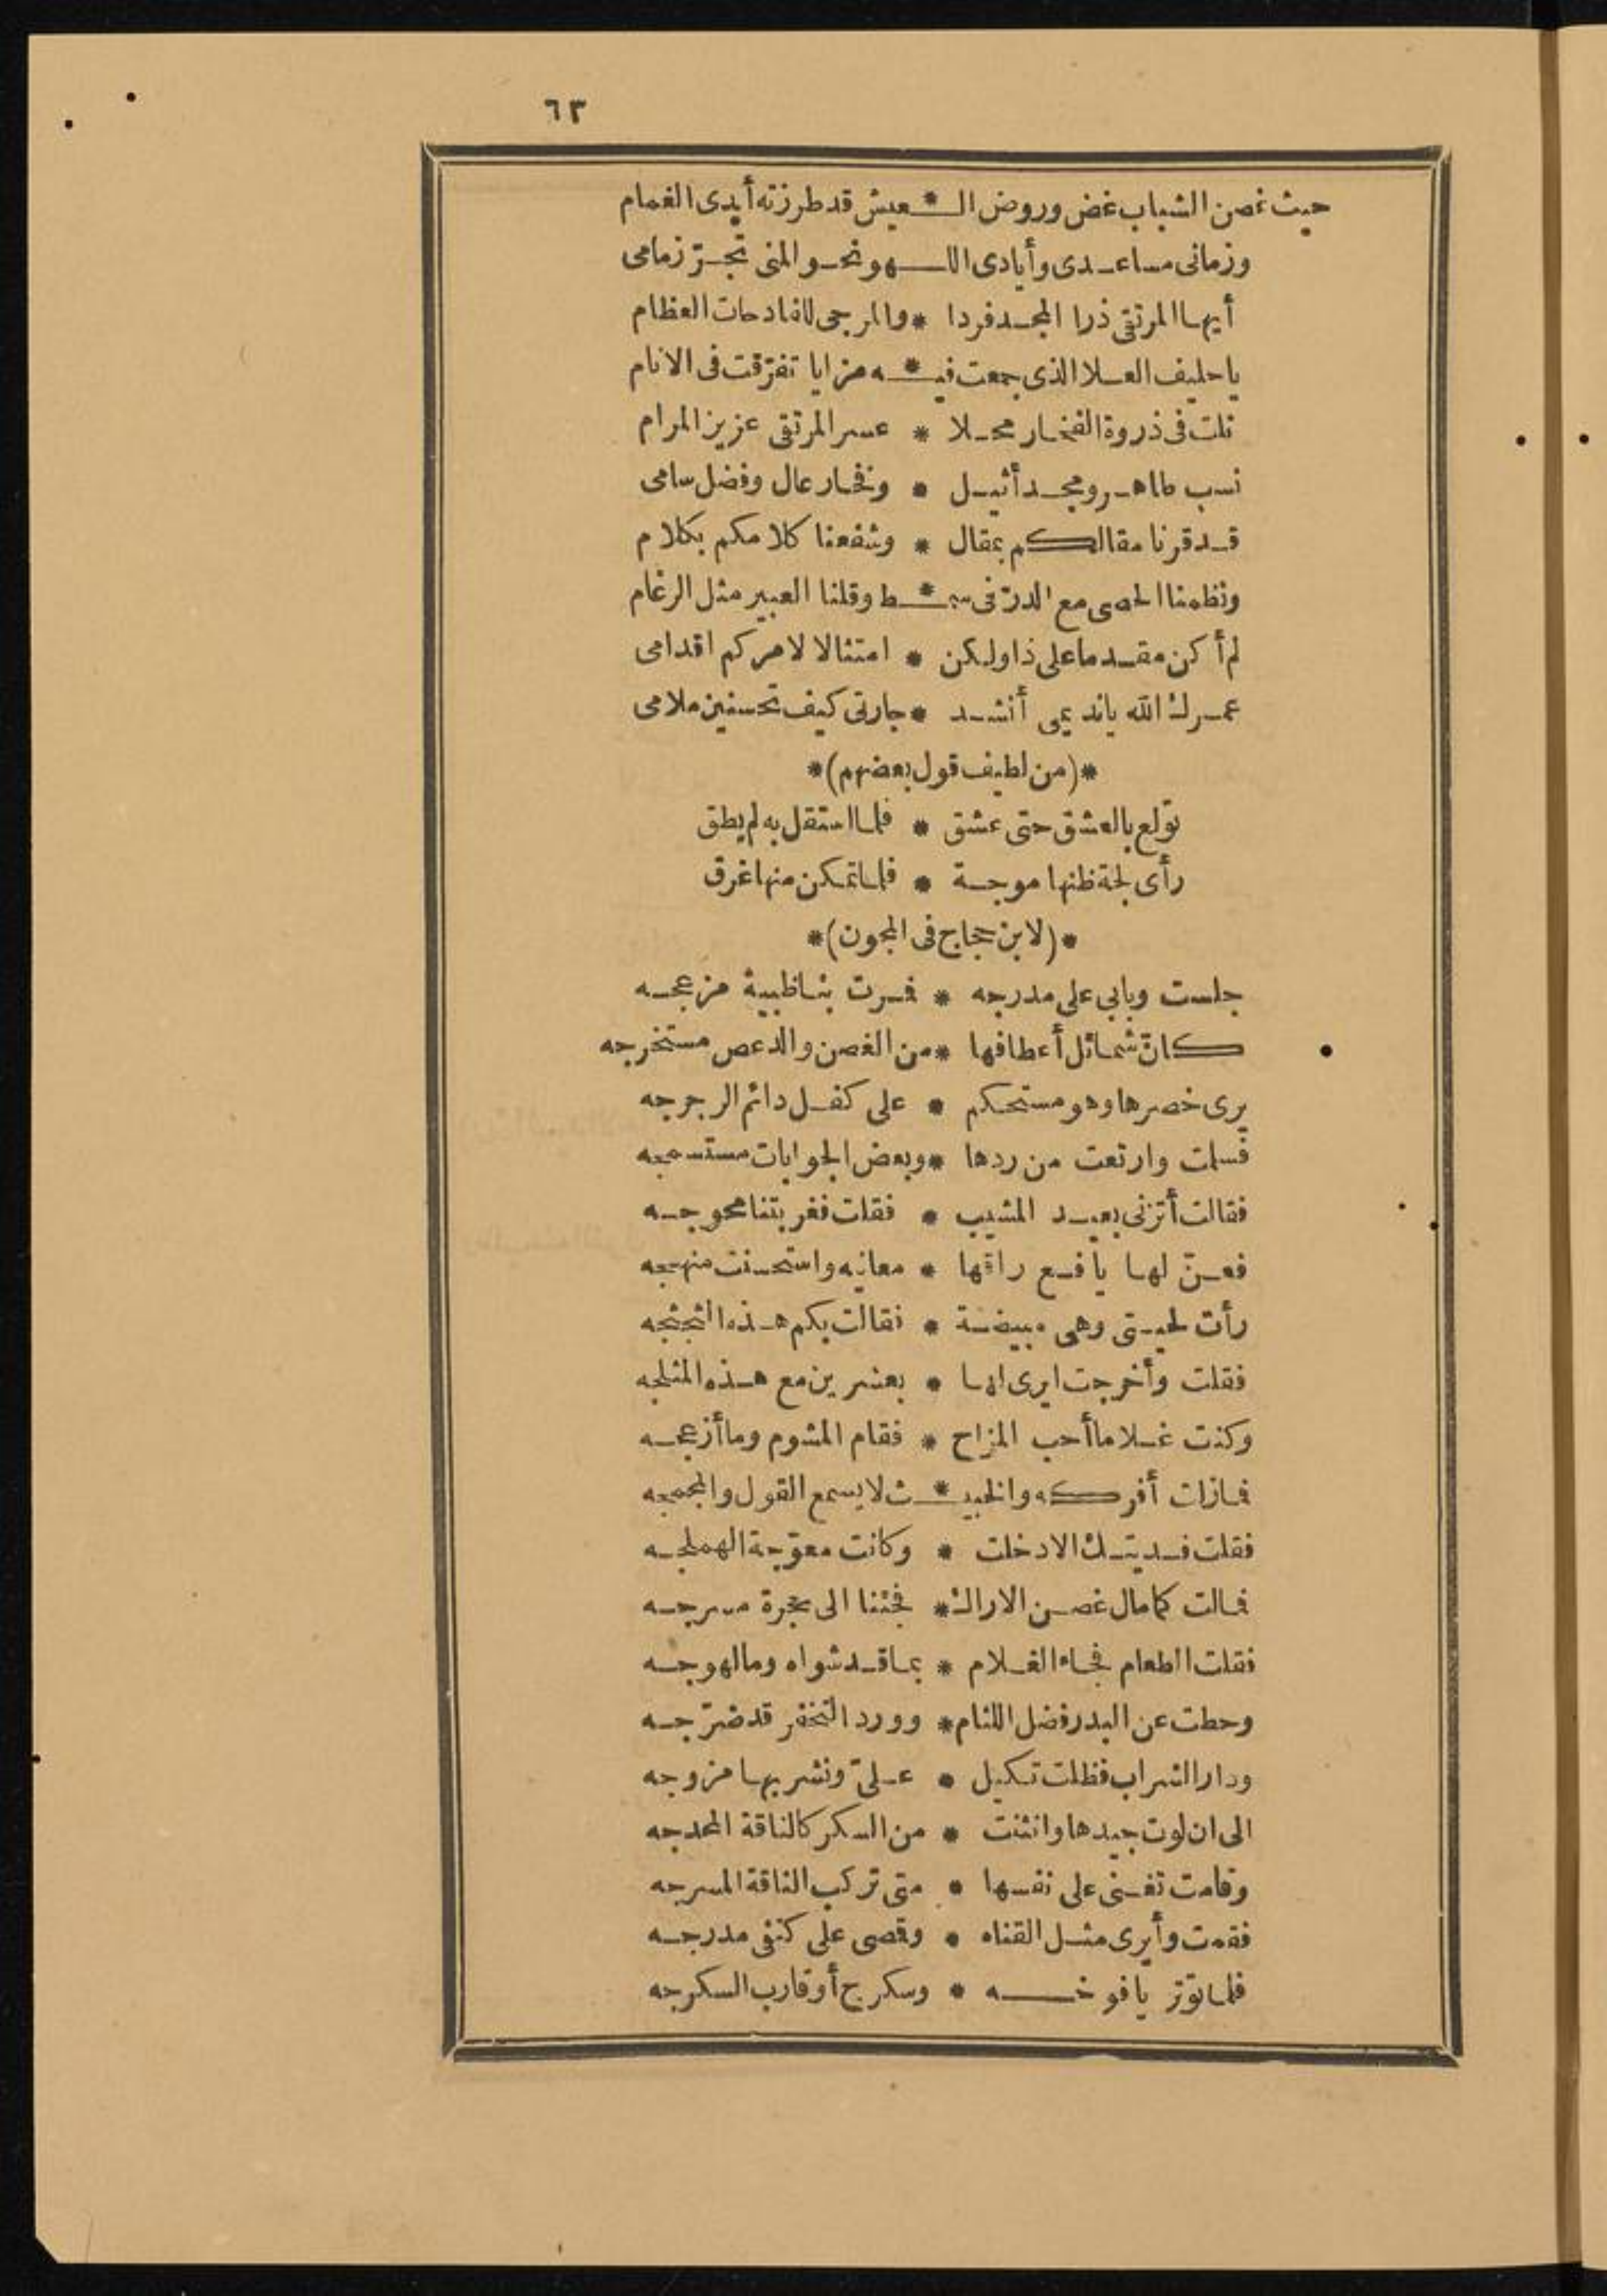 ٦٣
حيث غصن الشباب غض وروض الـ * ـعيش قد طرزته أيدى الغمام
وزمانى مساعدى وأيادى اللـهو نحو المنى تجرّ زمامى
أيها المرتقى ذرا المجد فردا * والمرجى للفادحات العظام
يا حليف العلا الذى جمعت فيـ * ـه مزايا تفرّقت فى الانام
نلت فى ذروة الفخار محلا * عسر المرتقى عزيز المرام
نسب طاهر ومجد أثيل * وفخار عال وفضل سامى
قد قرنا مقالكم بمقال * وشفعنا كلامكم بكلام
ونظمنا الحصى مع الدرّ فى سمـ * ـط وقلنا العبير مثل الرغام
لم أكن مقدما على ذا ولكن * امتثالا لامركم اقدامى
عمرك الله ياند يمى أنشد * جارتى كيف تحسنين ملامى
*(من لطيف قول بعضهم)*
تولع بالعشق حتى عشق * فلما استقل به لم يطق
رأى لجة ظنها موجة * فلما تمكن منها غرق
*(لابن حجاج فى المجون)*
جلست وبابى على مدرجه * فمرت بنا ظبية مزعجه
كانّ شمائل أعطافها * من الغصن والدعص مستخرجه
يرى خصرها وهو مستحكم * على كفل دائم الرجرجه
فسلمت وارتعت من ردها * وبعض الجوابات مستسمجه
فقالت أتزنى بعيد المشيب * فقلت فغربتنا محوجه
فعنّ لها يافع راقها * معانيه واستحسنت منهجه
رأت لحيتى وهى مبيضة * فقالت بكم هذه الثجثجه
فقلت وأخرجت ايرى لها * بعشرين مع هذه المثلجه
وكنت غلاما أحب المزاح * فقام المشوم وما أزعجه
فمازلت أفركه والخبيـ * ـث لا يسمع القول والمجمجه
فقلت فديتك الا دخلت * وكانت معوّجة الهملجه
فمالت كما مال غصن الاراك * فجئنا الى حجرة مسرجه
فقلت الطعام فجاء الغلام * بما قد شواه وما لهوجه
وحطت عن البدر فضل اللثام * وورد التخفر قد ضرّجه
ودار الشراب فظلت تكيل * علىّ ونشربها مزوجه
الى ان لوت جيدها وانثنت * من السكر كالناقة المحدجه
وقامت تغنى على نفسها * متى تركب الناقة المسرجه
فقمت وأيرى مثل القناه * وقصى على كتفى مدرجه
فلما توتر يافوخـه * وسكرج أو قارب السكرجه